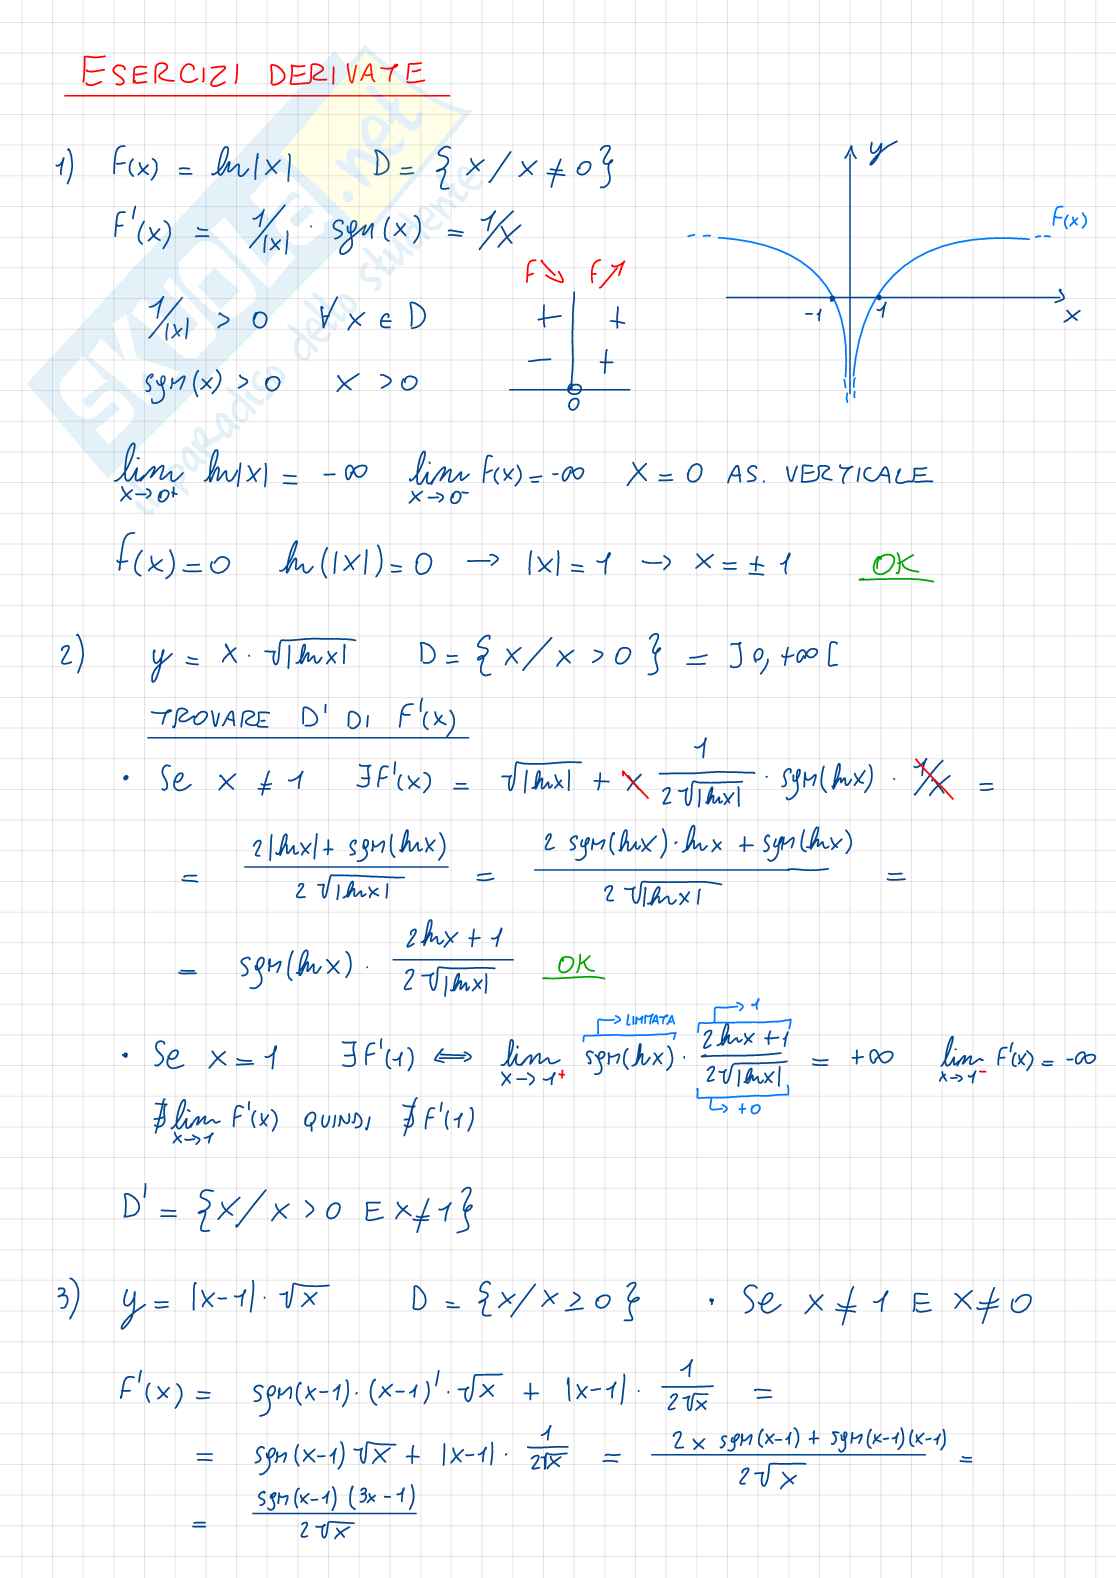 ESERCIZI DERIVATE
1) F(x) = ln|x| D = { x / x ≠ 0 }
F'(x) = 1/|x| · sgn(x) = 1/x
1/|x| > 0 ∀ x ∈ D
sgn(x) > 0 x > 0
F↘ F↗
+ +
− +
0
y
F(x)
-1 1 x
lim x→0+ ln|x| = -∞ lim x→0- f(x) = -∞ X = 0 AS. VERTICALE
f(x) = 0 ln(|x|) = 0 → |x| = 1 → x = ± 1 OK
2) y = x · √|ln x| D = { x / x > 0 } = ]0, +∞[
TROVARE D' DI F'(x)
· Se x ≠ 1 ∃F'(x) = √|ln x| + x 1/(2√|ln x|) · sgn(ln x) · 1/x =
= (2|ln x| + sgn(ln x))/(2√|ln x|) = (2 sgn(ln x) · ln x + sgn(ln x))/(2√|ln x|) =
= sgn(ln x) · (2 ln x + 1)/(2√|ln x|) OK
→ LIMITATA → 1
· Se x = 1 ∃F'(1) ⟺ lim x→1+ sgn(ln x) · (2 ln x + 1)/(2√|ln x|) = +∞ lim x→1- F'(x) = -∞
→ +0
∄ lim x→1 F'(x) QUINDI ∄ F'(1)
D' = { x / x > 0 E x ≠ 1 }
3) y = |x-1| · √x D = { x / x ≥ 0 } · Se x ≠ 1 E x ≠ 0
F'(x) = sgn(x-1) · (x-1)' · √x + |x-1| · 1/(2√x) =
= sgn(x-1) √x + |x-1| · 1/(2√x) = (2x sgn(x-1) + sgn(x-1)(x-1))/(2√x) =
= (sgn(x-1) (3x-1))/(2√x)
SKUOLA.net
il paradiso dello studente